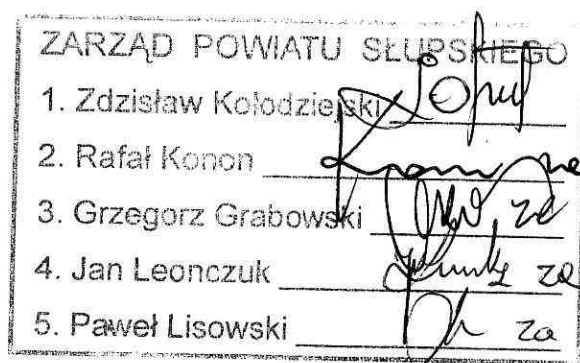 ZARZĄD POWIATU SŁUPSKIEGO
1. Zdzisław Kołodziejski
2. Rafał Konon
3. Grzegorz Grabowski za
4. Jan Leonczuk za
5. Paweł Lisowski za